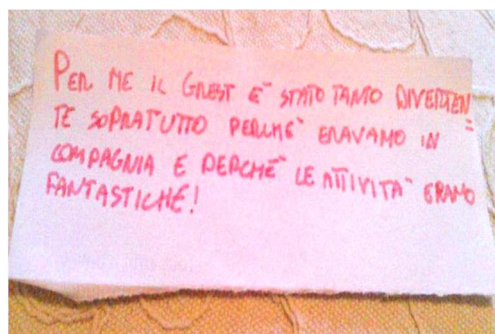 PER ME IL GREST E' STATO TANTO DIVERTEN=
TE SOPRATUTTO PERCHE' ERAVAMO IN
COMPAGNIA E PERCHE' LE ATTIVITA' ERANO
FANTASTICHE!